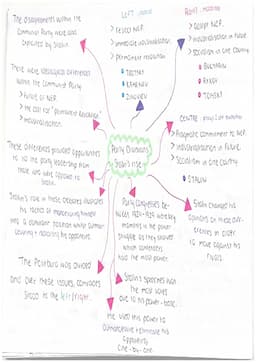 The disagreements within the
Communist Party were also
exploited by Stalin.
There were ideological differences
within the Communist Party
Future of NEP.
the call for "permanent revolution"
Industrialisation.
These differences provided opportunities
to the party leadership from
those who were opposed
to Stalin.
Stalin's role in these debates illustrates
his tactics of manoeuvring himself
into a dominant position whilst
his opponents.
The Politburo was divided
over these issues,
to the left/right.
LEFT
reject NEP.
immediate industrialisation
permanent revolution
TROTSKY
KAMENEV
ZINOVIEV
RIGHT
accept NEP.
industrialisation in future
Socialism in One Country
BUKHARIN
RYKOV
TOMSKY
CENTRE
Pragmatic commitment to NEP.
industrialisation in future.
Socialism in One Country
STALIN
Party Divisions
Stalin's rise
Party Congresses be-
tween 1923 + 1925 were key
moments in the power
struggle as they showed
which contenders
had the most power.
Stalin changed his
opinions on these diff-
erences in order
to move against his
rivals.
Stalin's speeches won
the most votes
due to his power-base.
He used this power to
outmanoeuvre + remove his
opponents
one-by-one.